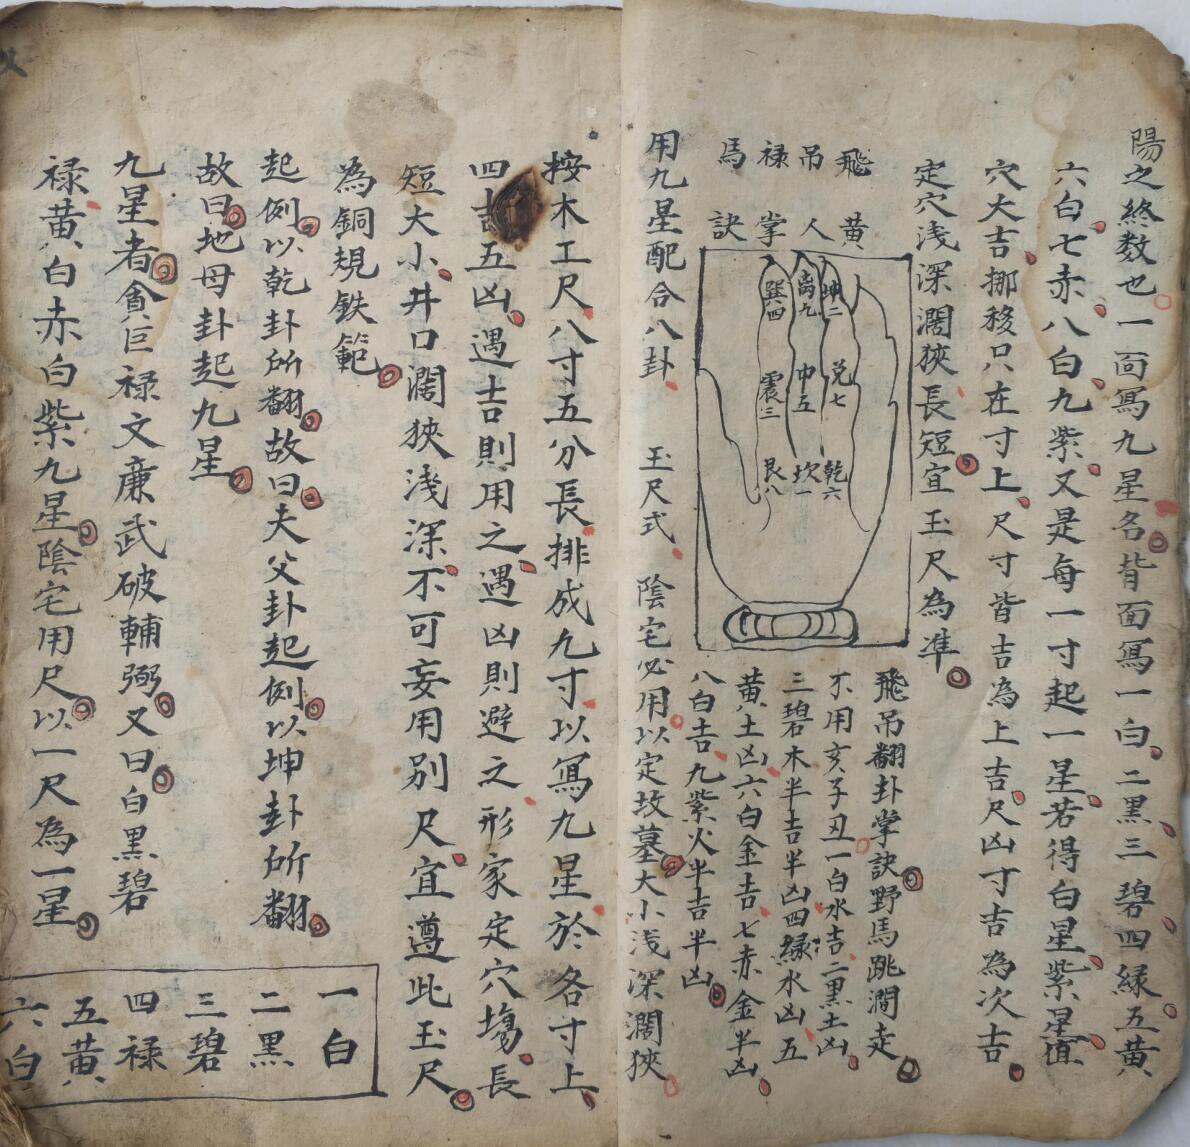 陽之終数也一面寫九星名背面寫一白二黒三碧四緑五黄
六白七赤八白九紫又是每一寸起一星若得白星紫星值
穴大吉挪移只在寸上尺寸皆吉為上吉尺凶寸吉為次吉
定穴浅深濶狹長短宜玉尺為準
飛吊禄馬
黄人掌訣
坤二
兌七
乾六
離九
中五
坎一
巽四
震三
艮八
飛吊翻卦掌訣野馬跳澗走
不用亥子丑一白水吉二黒土凶
三碧木半吉半凶四緑水凶五
黄土凶六白金吉七赤金半凶
八白吉九紫火半吉半凶
用九星配合八卦 玉尺式 陰宅必用以定坟墓大小浅深濶狹
按木工尺八寸五分長排成九寸以寫九星於各寸上
四吉五凶遇吉則用之遇凶則避之形家定穴塲長
短大小井口濶狹浅深不可妄用別尺宜遵此玉尺
為銅規鉄範
起例以乾卦所翻故曰夫父卦起例以坤卦所翻
故曰地母卦起九星
九星者貪巨禄文廉武破輔弼又曰白黒碧
禄黄白赤白紫九星陰宅用尺以一尺為一星
一白
二黒
三碧
四禄
五黄
六白